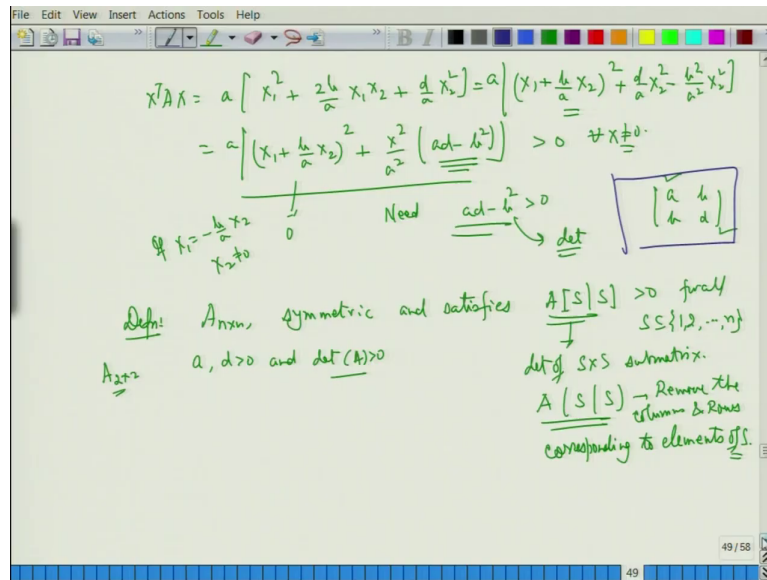 File Edit View Insert Actions Tools Help
xᵀAx = a [ x₁² + 2b/a x₁x₂ + d/a x₂² ] = a [ (x₁ + b/a x₂)² + d/a x₂² - b²/a² x₂² ]
= a [ (x₁ + b/a x₂)² + x²/a² (ad - b²) ] > 0 ∀ x ≠ 0.
[ a b
b d ]
If x₁ = -b/a x₂
x₂ ≠ 0
0
Need ad - b² > 0
det
Defn: Anxn, symmetric and satisfies A[S|S] > 0 for all
S ⊆ {1,2,...,n}
A₂ₓ₂ a, d > 0 and det(A) > 0
det of SxS submatrix.
A(S|S) → Remove the
columns & Rows
corresponding to elements of S.
49 / 58
49